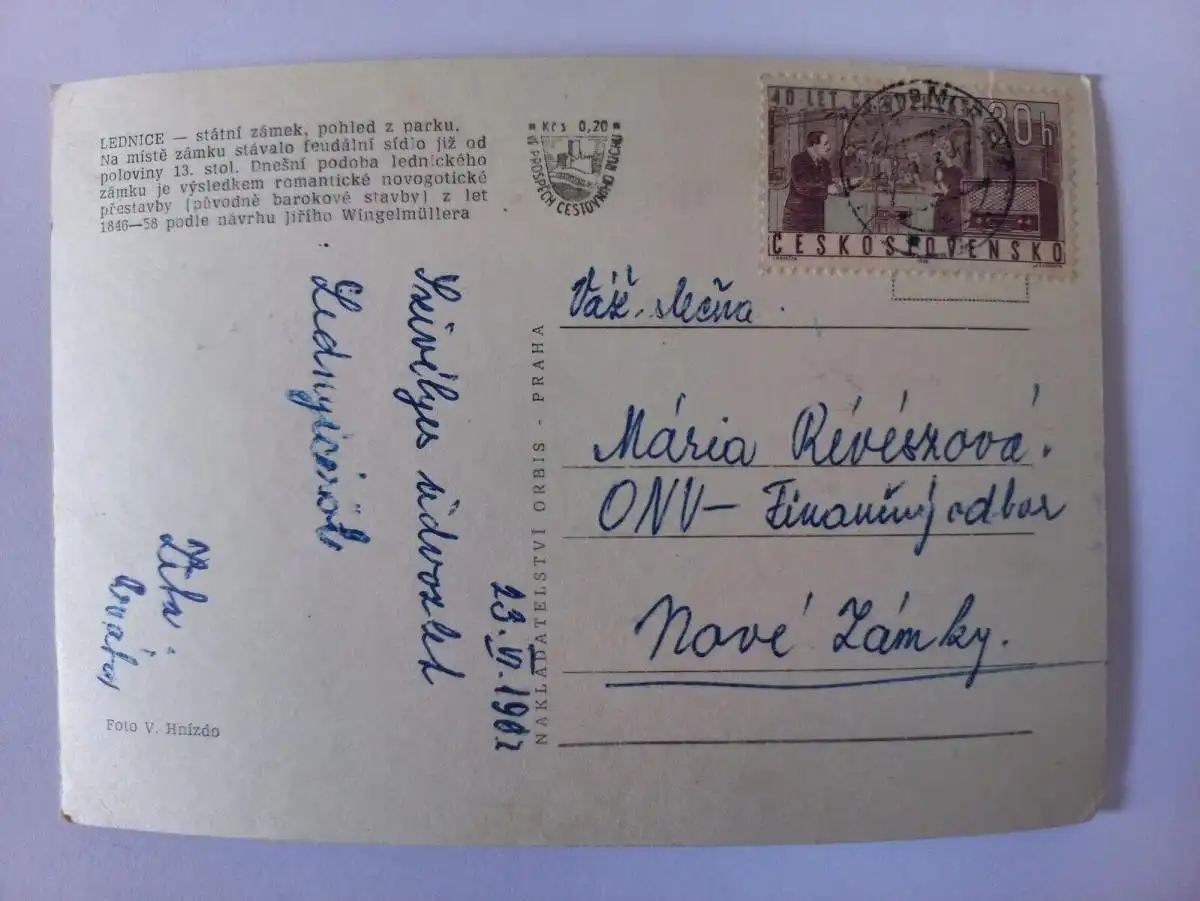 LEDNICE — státní zámek, pohled z parku.
Na místě zámku stávalo feudální sídlo již od
poloviny 13. stol. Dnešní podoba lednického
zámku je výsledkem romantické novogotické
přestavby (původně barokové stavby) z let
1846—58 podle návrhu Jiřího Wingelmüllera
Kčs 0,20
VE PROSPĚCH CESTOVNÍHO RUCHU
40 LET
30 h
ČESKOSLOVENSKO
Szívélyes üdvözlet
Lednyicéről
23. VI. 196
NAKLADATELSTVÍ ORBIS - PRAHA
Váž. slečna
Mária Révészová.
ONV — Finančný odbor
Nové Zámky.
Foto V. Hnízdo